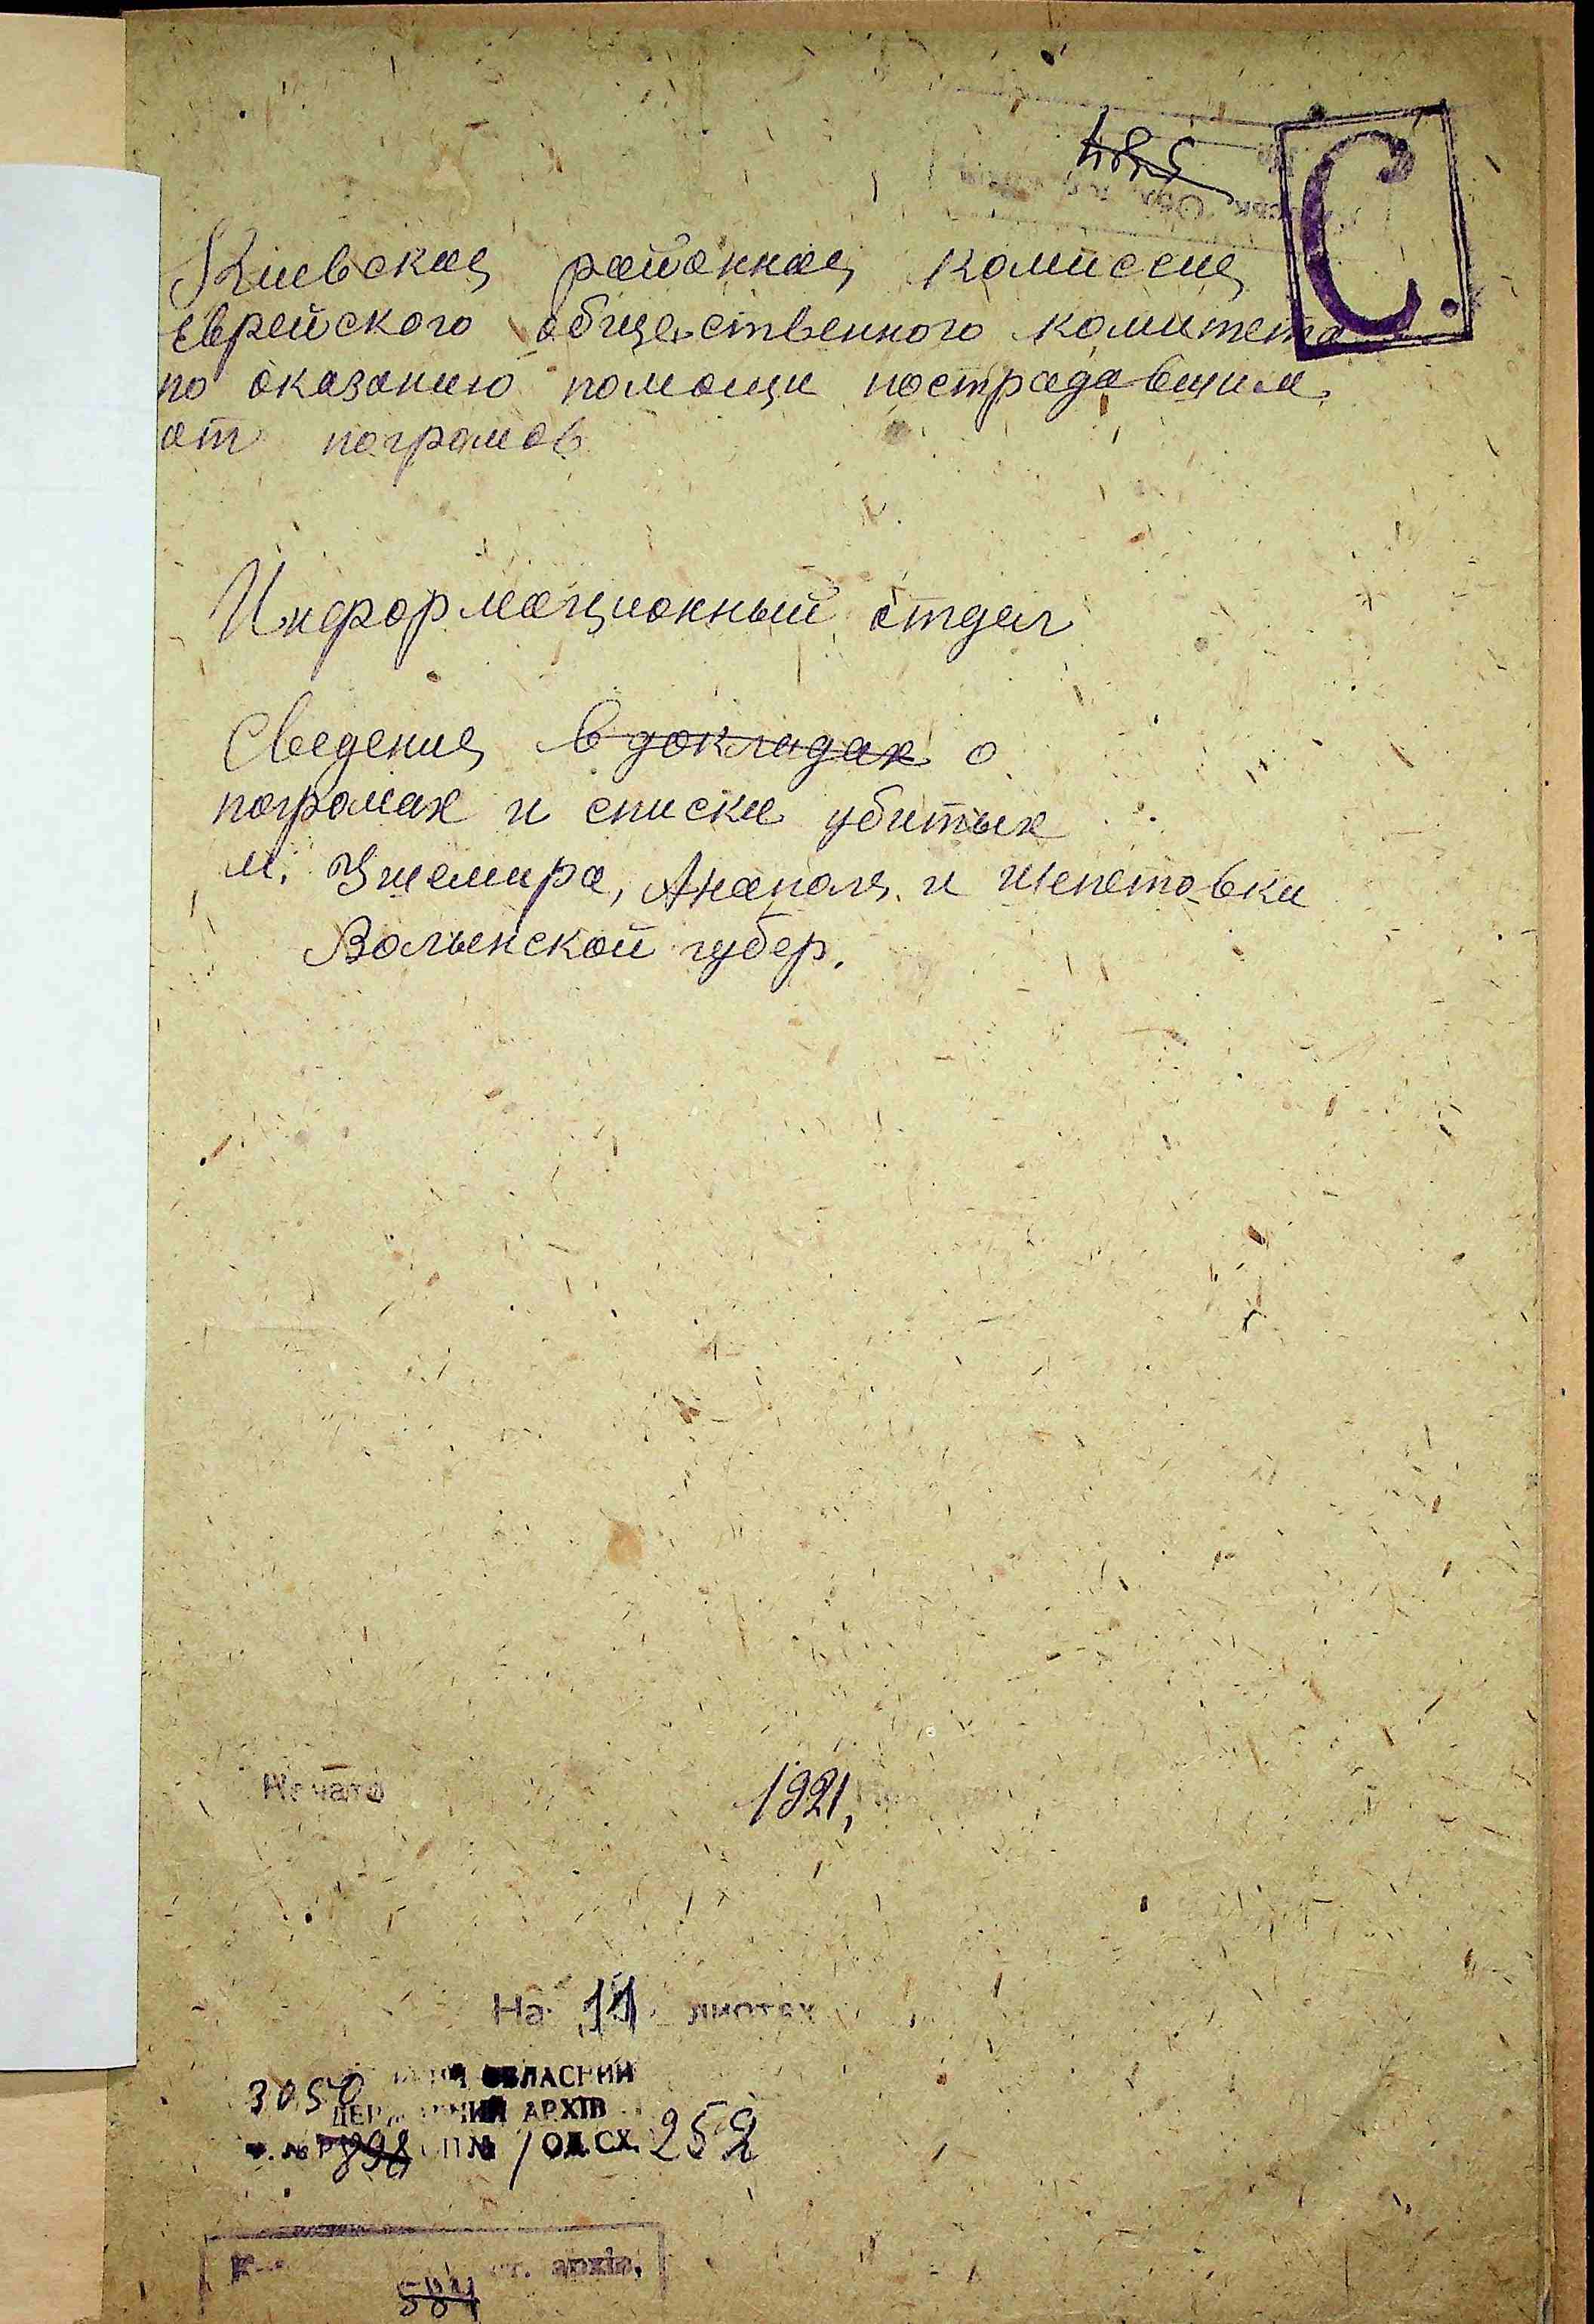 С.
Киевская районная комиссия
еврейского общественного комитета
по оказанию помощи пострадавшим
от погромов
Информационный отдел
Сведения в докладах о
погромах и списки убитых
м. Ушомира, Анаполя и Шепетовки
Волынской губер.
Начато
1921,
На 11 листах
3050 ОБЛАСНИЙ
АРХІВ
898 ОП № 1 ОД. СХ. 252
архів.
584